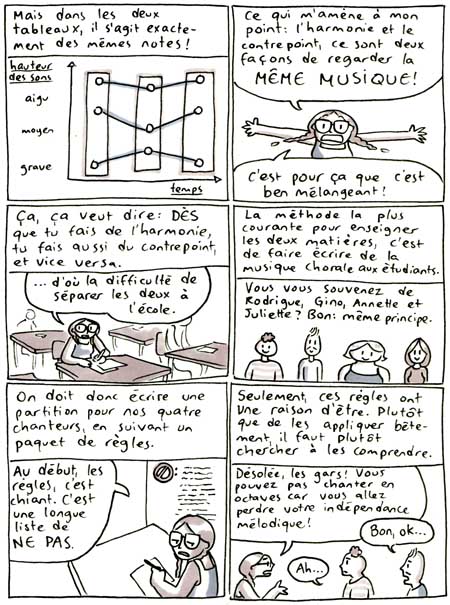 Mais dans les deux
tableaux, il s'agit exacte-
ment des mêmes notes!
hauteur
des sons
aigu
moyen
grave
temps
Ce qui m'amène à mon
point: l'harmonie et le
contrepoint, ce sont deux
façons de regarder la
MÊME MUSIQUE!
C'est pour ça que c'est
ben mélangeant!
Ça, ça veut dire: DÈS
que tu fais de l'harmonie,
tu fais aussi du contrepoint,
et vice versa.
... d'où la difficulté de
séparer les deux à
l'école.
La méthode la plus
courante pour enseigner
les deux matières, c'est
de faire écrire de la
musique chorale aux étudiants.
Vous vous souvenez de
Rodrigue, Gino, Annette et
Juliette? Bon: même principe.
On doit donc écrire une
partition pour nos quatre
chanteurs, en suivant un
paquet de règles.
Au début, les
règles, c'est
chiant. C'est
une longue
liste de
NE PAS.
Seulement, ces règles ont
une raison d'être. Plutôt
que de les appliquer bête-
ment, il faut plutôt
chercher à les comprendre.
Désolée, les gars! Vous
pouvez pas chanter en
octaves car vous allez
perdre votre indépendance
mélodique!
Ah...
Bon, ok...